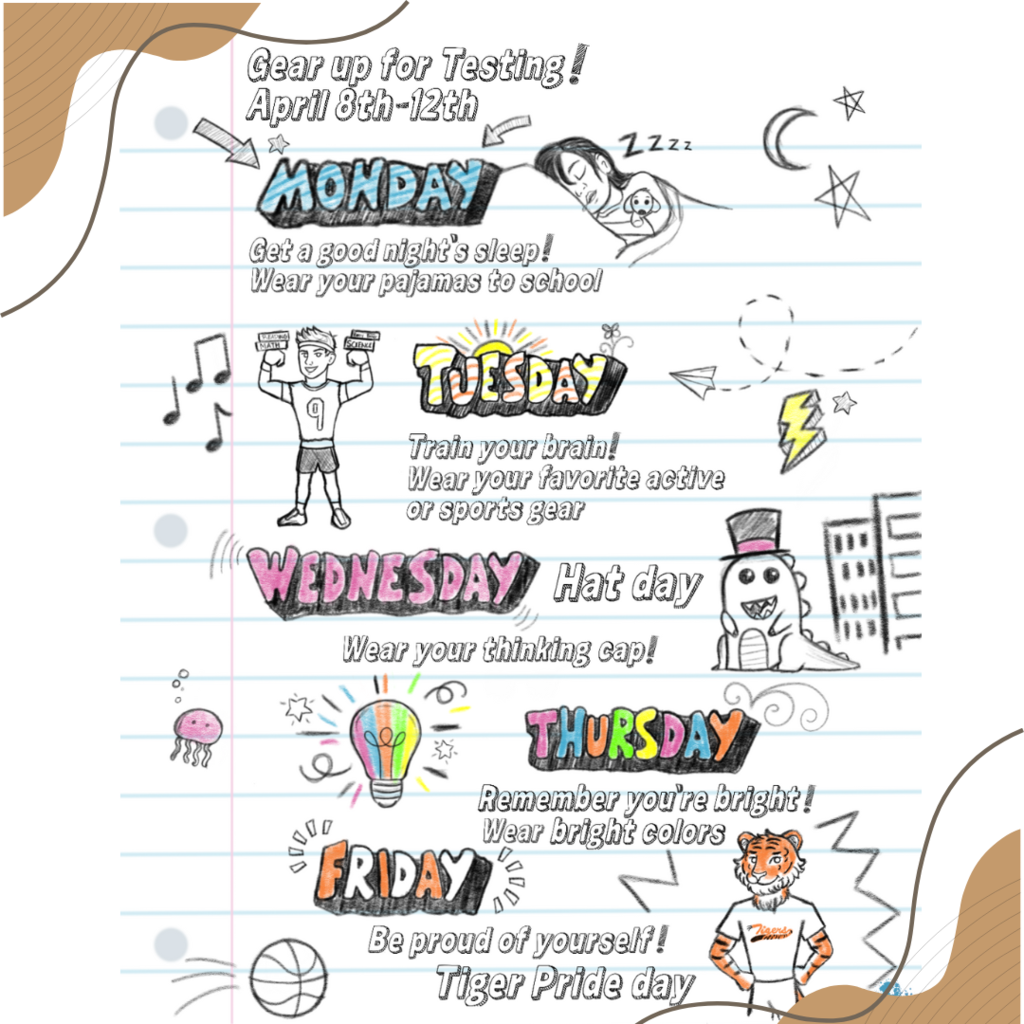 Gear up for Testing!
April 8th-12th
MONDAY
Zzzzz
Get a good night's sleep!
Wear your pajamas to school
MATH
SCIENCE
9
TUESDAY
Train your brain!
Wear your favorite active
or sports gear
WEDNESDAY
Hat day
Wear your thinking cap!
THURSDAY
Remember you're bright!
Wear bright colors
FRIDAY
Tigers
Be proud of yourself!
Tiger Pride day